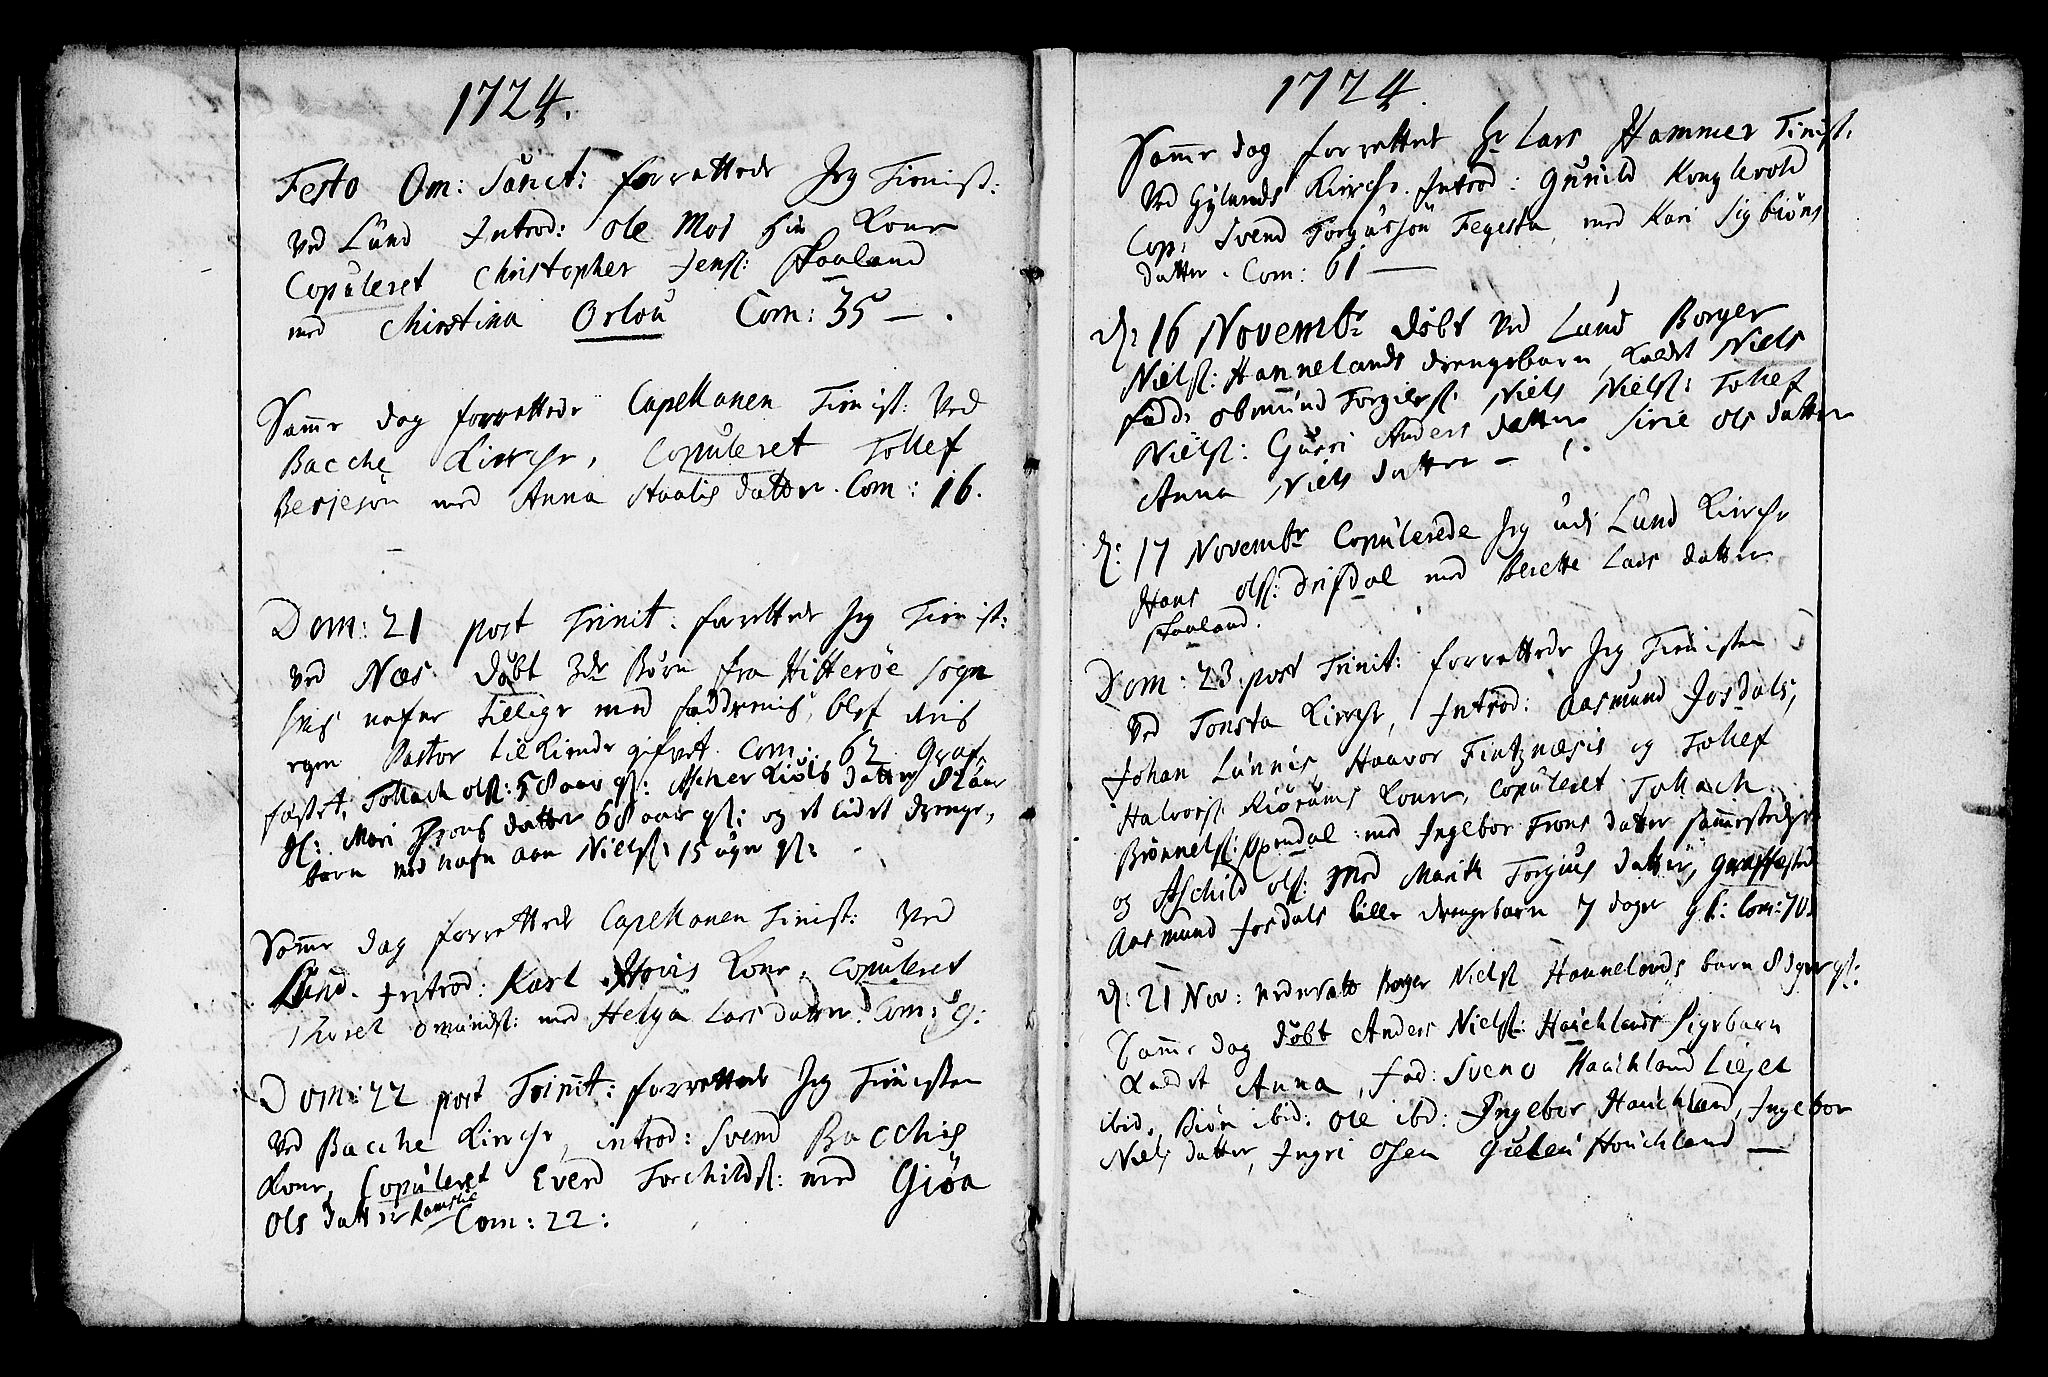 1724.
Festo Om: Sanct: forrettede Jeg Tienist:
ved Lünd Introd: Ole Moi hin Kone
Copuleret Christopher Jens: Skaaland
med Chirstina Orlou Com: 35 — .
Samme dag forrettede Capellanen Tienist: ved
Bacche Kirche, Copuleret Tollef
Berjeson med Anna Staalis datter. Com: 16.
Dom: 21 post Trinit. forrettede Jeg Tienist:
ved Næs. döbt 3de Börn fra Hitteröe Sogn
hvis nafne tillige med faddernis, blef deris
egen Pastor tilkiende gifvet. Com: 62 Graf
fæstet, Tollach ols: 58 aar gl: datter 82 aar
gl: Mari datter 68 aar gl: og et lidet drenge,
barn med nafn Niels: 15 uger gl:
Samme dag forrettede Capellanen Tienist: ved
Lünd. Introd: Karl Hovis Kone, Copuleret
Omunds: med Helga Lars datter. Com: 9:
Dom: 22 post Trinit: forrettede Jeg Tienisten
ved Bacche Kirche, introd: Svend Bacchis
Kone, Copuleret Everd Torchilds: med Giöa
Ols datter Ramslie Com: 22:
1724.
Samme dag forrettet Hr Lars Hammer Tienist:
ved Gylands Kirche. Introd: Gunild Konglevold
Cop: Svend Torgusson Fegesta, med Kari Sigbiöns
datter. Com: 61 —
d: 16 Novembr döbt ved Lund Borger
Niels: Hannelands drengebarn, kaldet Niels
fadd: Torgiers: Niels Niels: Tollef
Niels: Guri Anders datter Sirie Ols datter
Anna Niels datter —
d: 17 Novembr Copulerede Jeg udi Lund Kirche
Hans ols: Drifdal med Berette Lars datter
Skaaland.
Dom: 23. post Trinit: forrettede Jeg Tienisten
ved Tonsta Kirche, Introd: Aasmund Josdals,
Johan Lunnis, Haavor Fintznæsis og Tollef
Halvors: Kone, Copuleret Tollach
Brönnels: Opendal med Ingebor Trons datter sammestedz
og Aschild ols: med Marith Torgius datter, Graffæstet
Aasmund Josdals lille drengebarn 7 dager gl: Com: 70.
d: 21 Nov: nedersatt Borger Niels: Hannelands barn 8 dager gl:
Samme dag döbt Anders Niels: Hauchlands Pigebarn
kaldet Anna, fad: Svend Hauchland
ibid. Biön ibid: Ole ibd: Ingebor Hauchland, Ingebor
Niels datter, Ingri Hauchland —